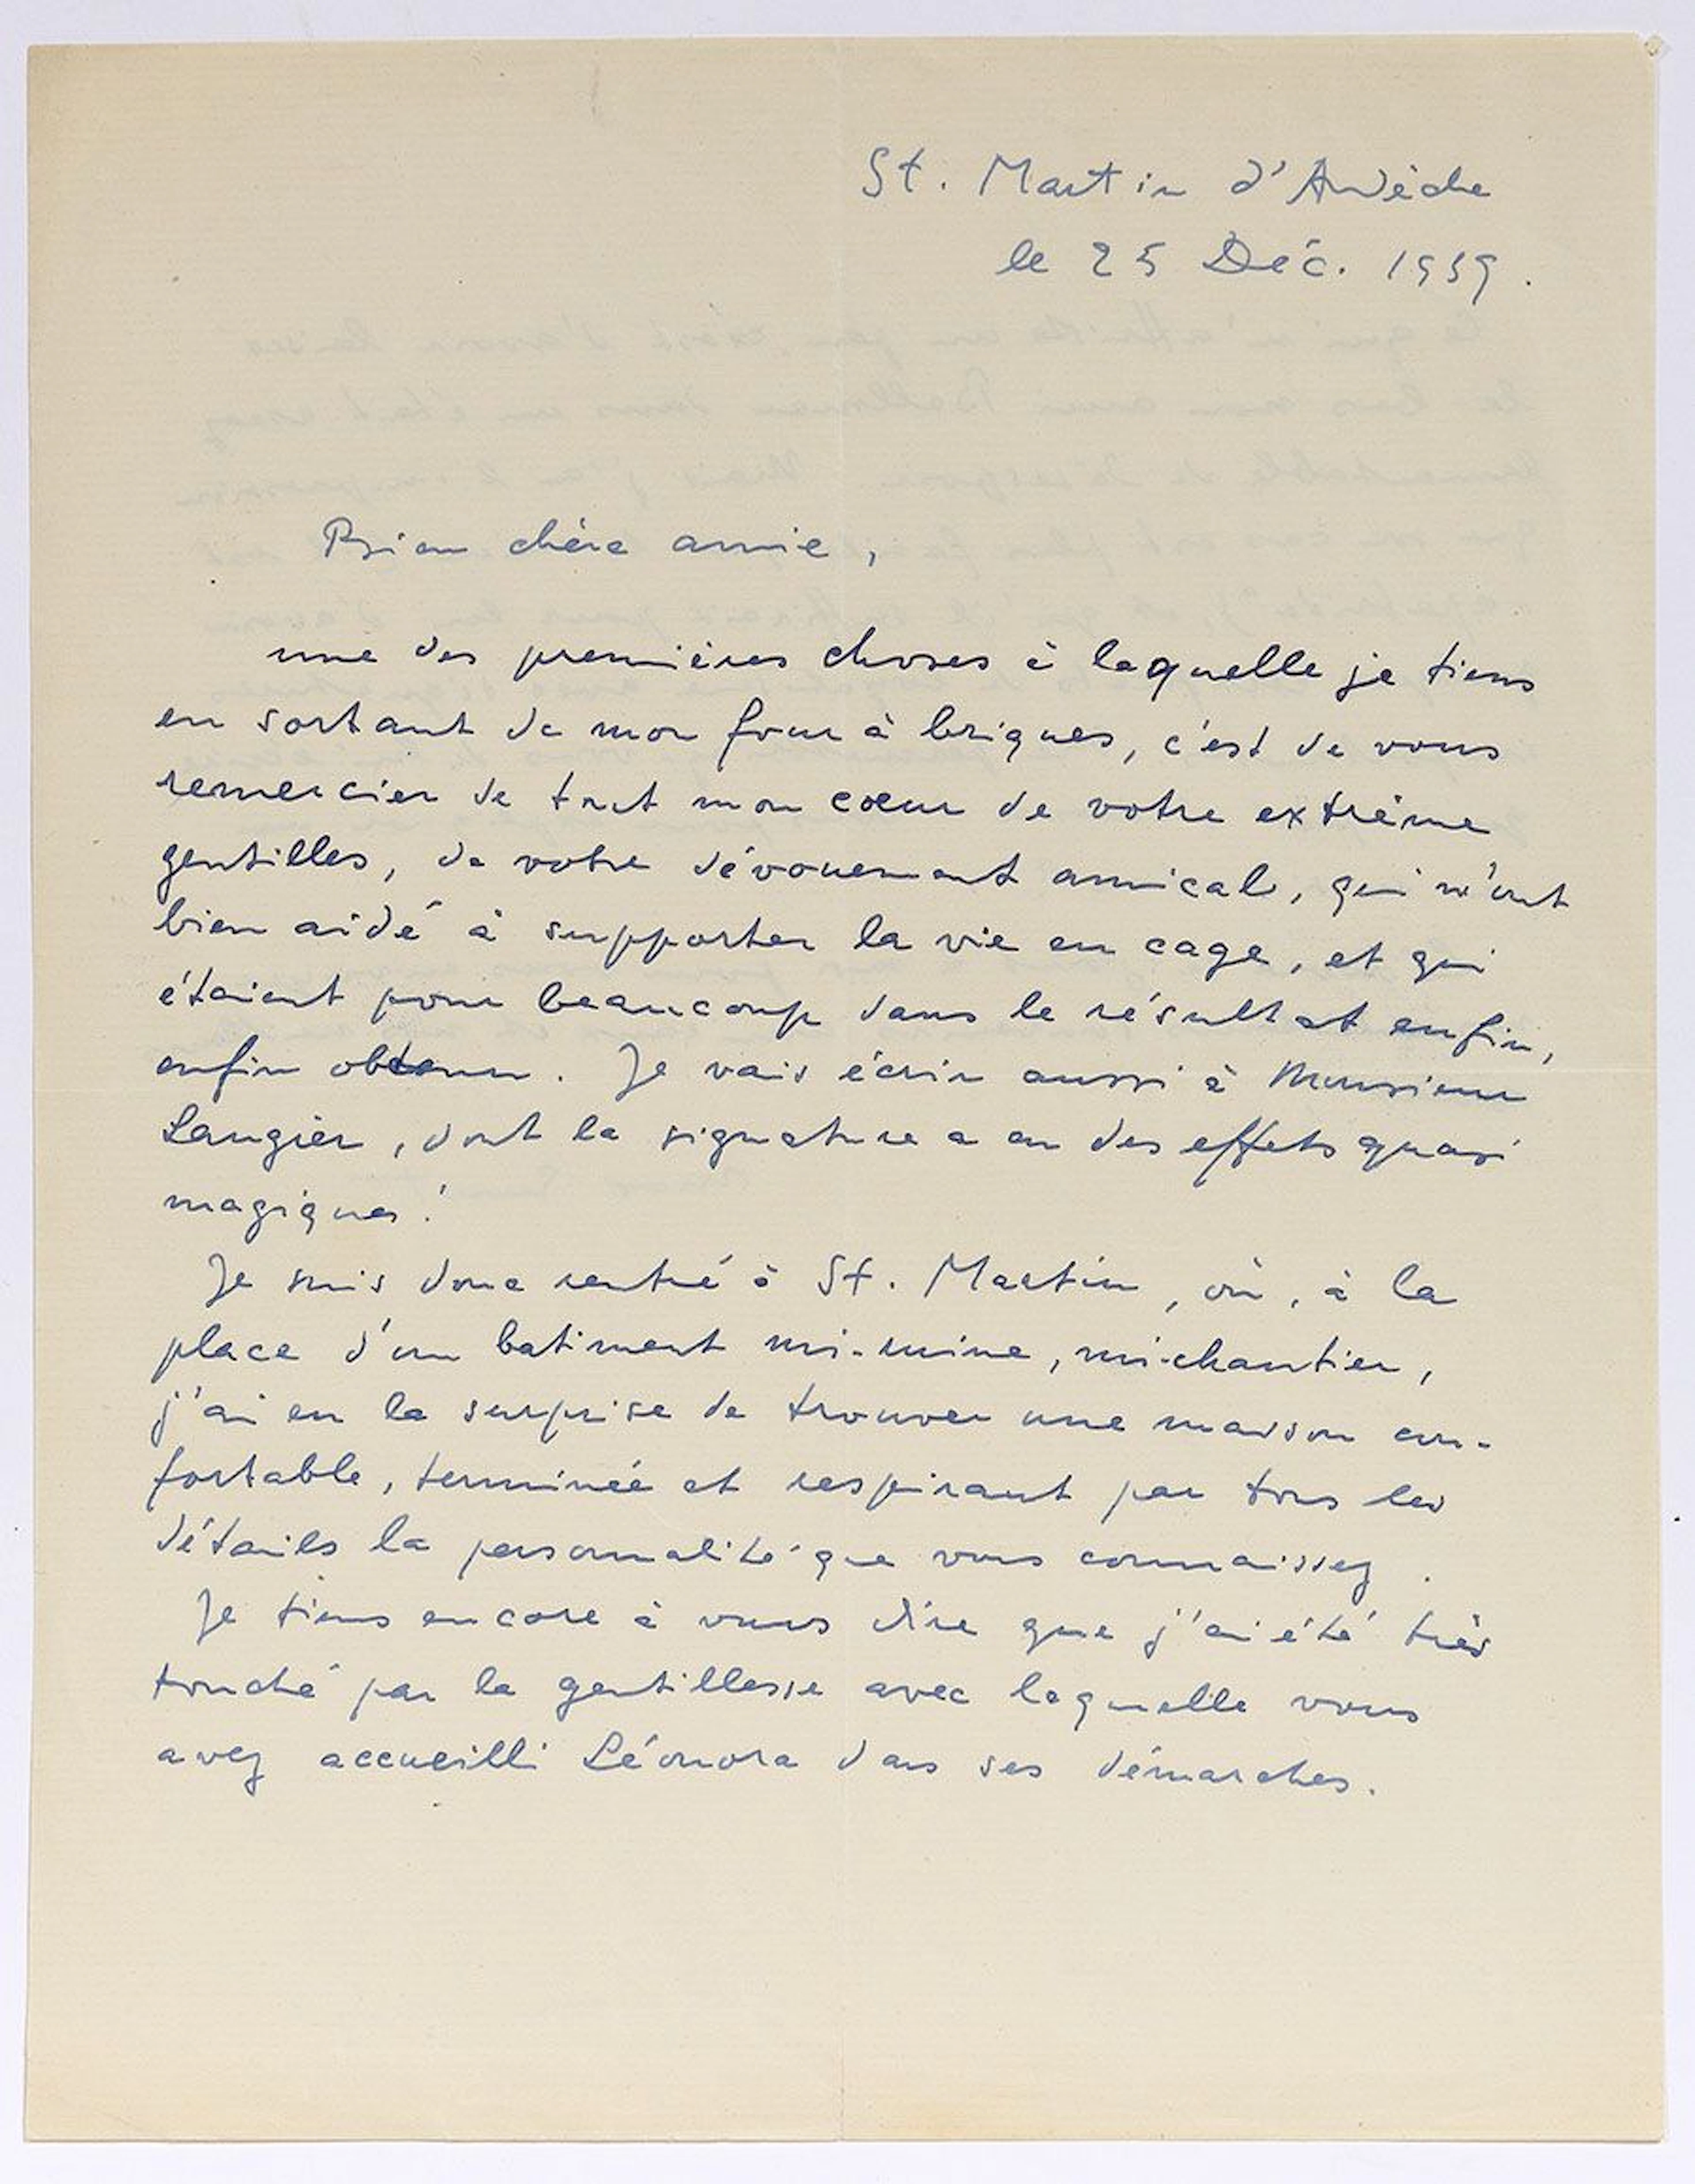 St. Martin d'Ardèche
le 25 Déc. 1939.
Bien chère amie,
une des premières choses à laquelle je tiens
en sortant de mon four à briques, c'est de vous
remercier de tout mon cœur de votre extrême
gentilles, de votre dévouement amical, qui m'ont
bien aidé à supporter la vie en cage, et qui
étaient pour beaucoup dans le résultat enfin,
enfin obtenu. Je vais écrir aussi à Monsieur
Laugier, dont la signature a eu des effets quasi
magiques!
Je suis donc rentré à St. Martin, où, à la
place d'un batiment mi-ruine, mi-chantier,
j'ai eu la surprise de trouver une maison con-
fortable, terminée et respirant par tous les
détails la personnalité que vous connaissez.
Je tiens encore à vous dire que j'ai été très
touché par la gentillesse avec laquelle vous
avez accueilli Léonora dans ses démarches.